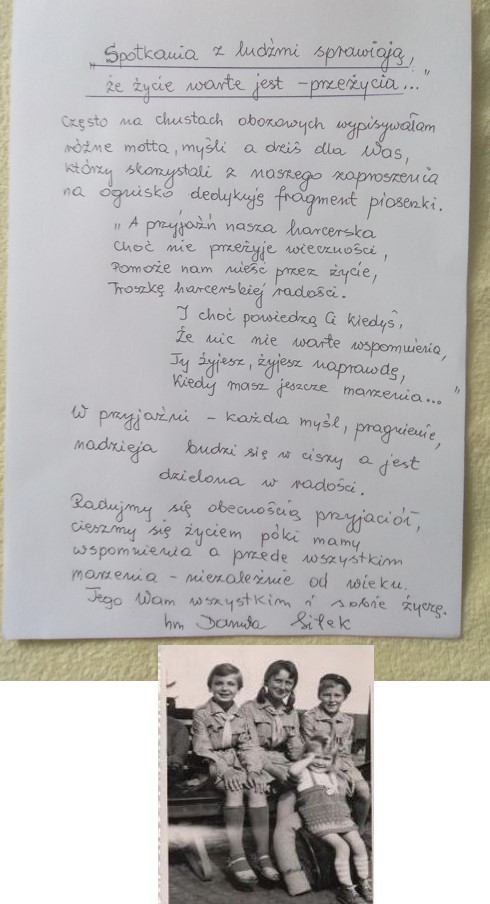 „Spotkania z ludźmi sprawiają,
że życie warte jest – przeżycia..."
Często na chustach obozowych wypisywałam
różne motta, myśli a dziś dla Was,
którzy skorzystali z naszego zaproszenia
na ognisko dedykuję fragment piosenki.
„A przyjaźń nasza harcerska
Choć nie przeżyje wieczności,
Pomoże nam nieść przez życie,
Troszkę harcerskiej radości.
I choć powiedzą Ci kiedyś,
Że nic nie warte wspomnienia,
Ty żyjesz, żyjesz naprawdę,
Kiedy masz jeszcze marzenia..."
W przyjaźni – każda myśl, pragnienie,
nadzieja budzi się w ciszy a jest
dzielona w radości.
Radujmy się obecnością przyjaciół,
cieszmy się życiem póki mamy
wspomnienia a przede wszystkim
marzenia – niezależnie od wieku.
Tego Wam wszystkim i sobie życzę.
hm Danuta